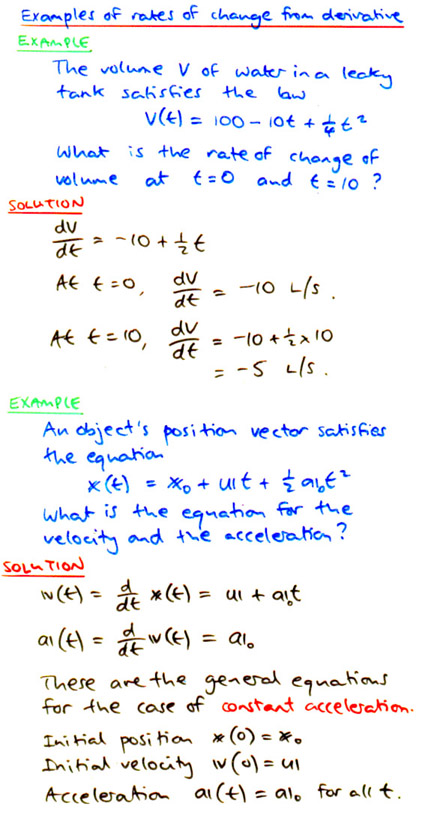 Examples of rates of change from derivative
EXAMPLE
The volume V of water in a leaky
tank satisfies the law
V(t) = 100 - 10t + 1/4 t²
What is the rate of change of
volume at t=0 and t=10?
SOLUTION
dV/dt = -10 + 1/2 t
At t=0, dV/dt = -10 L/s.
At t=10, dV/dt = -10 + 1/2 × 10
= -5 L/s.
EXAMPLE
An object's position vector satisfies
the equation
𝕩(t) = 𝕩₀ + 𝕦t + 1/2 𝕒₀t²
What is the equation for the
velocity and the acceleration?
SOLUTION
𝕧(t) = d/dt 𝕩(t) = 𝕦 + 𝕒₀t
𝕒(t) = d/dt 𝕧(t) = 𝕒₀
These are the general equations
for the case of constant acceleration.
Initial position 𝕩(0) = 𝕩₀
Initial velocity 𝕧(0) = 𝕦
Acceleration 𝕒(t) = 𝕒₀ for all t.